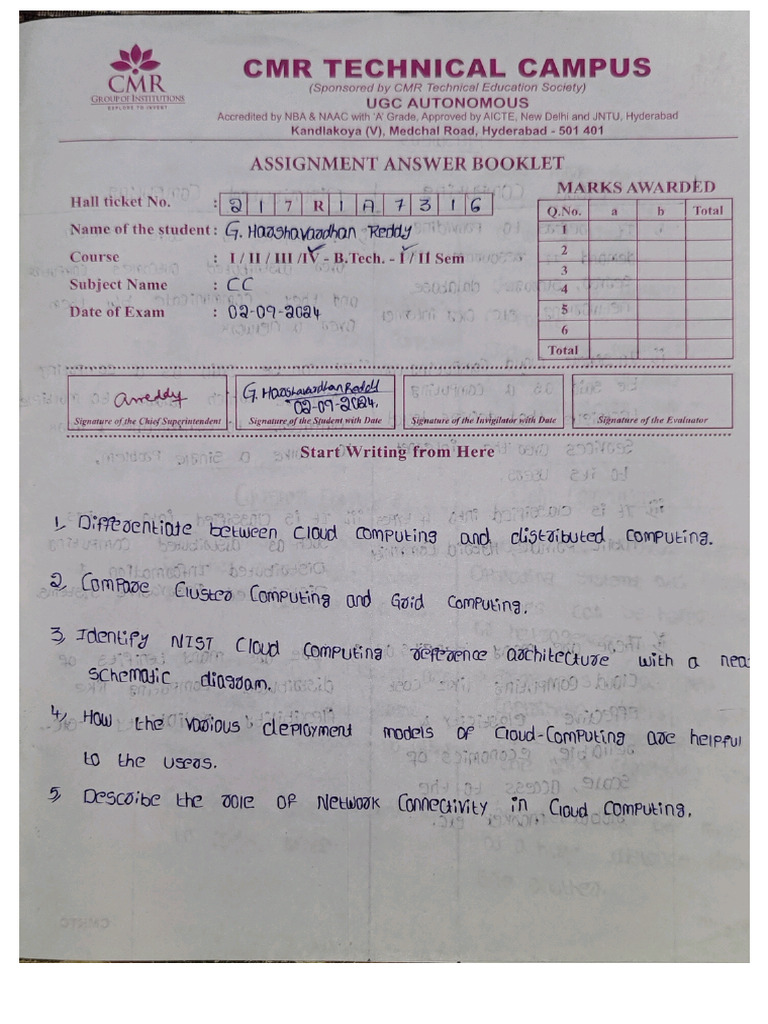 CMR
GROUP OF INSTITUTIONS
EXPLORE TO INVENT
CMR TECHNICAL CAMPUS
(Sponsored by CMR Technical Education Society)
UGC AUTONOMOUS
Accredited by NBA & NAAC with 'A' Grade, Approved by AICTE, New Delhi and JNTU, Hyderabad
Kandlakoya (V), Medchal Road, Hyderabad - 501 401
ASSIGNMENT ANSWER BOOKLET
MARKS AWARDED
Hall ticket No. : 217R1A7316
Name of the student : G. Harshavardhan Reddy
Course : I / II / III / IV - B.Tech. - I / II Sem
Subject Name : CC
Date of Exam : 02-09-2024
Q.No. a b Total
1
2
3
4
5
6
Total
G. Harshavardhan Reddy
02-09-2024.
Signature of the Chief Superintendent
Signature of the Student with Date
Signature of the Invigilator with Date
Signature of the Evaluator
Start Writing from Here
1, Differentiate between Cloud computing and distributed computing.
2, Compare Cluster Computing and Grid Computing.
3, Identify NIST Cloud Computing reference architecture with a nea
schematic diagram.
4, How the various deployment models of Cloud-Computing are helpful
to the users.
5, Describe the role of Network Connectivity in Cloud Computing.